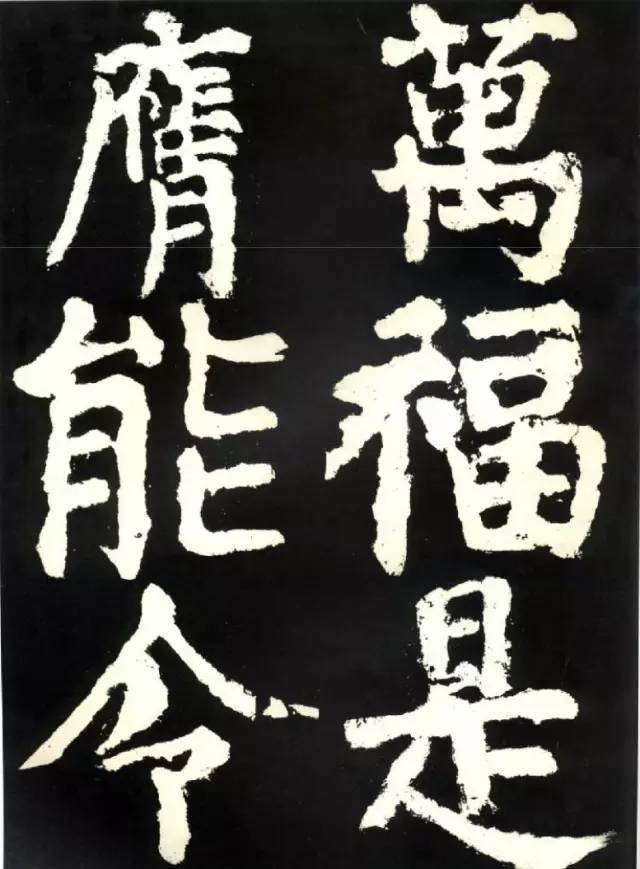 萬福是
膺能令